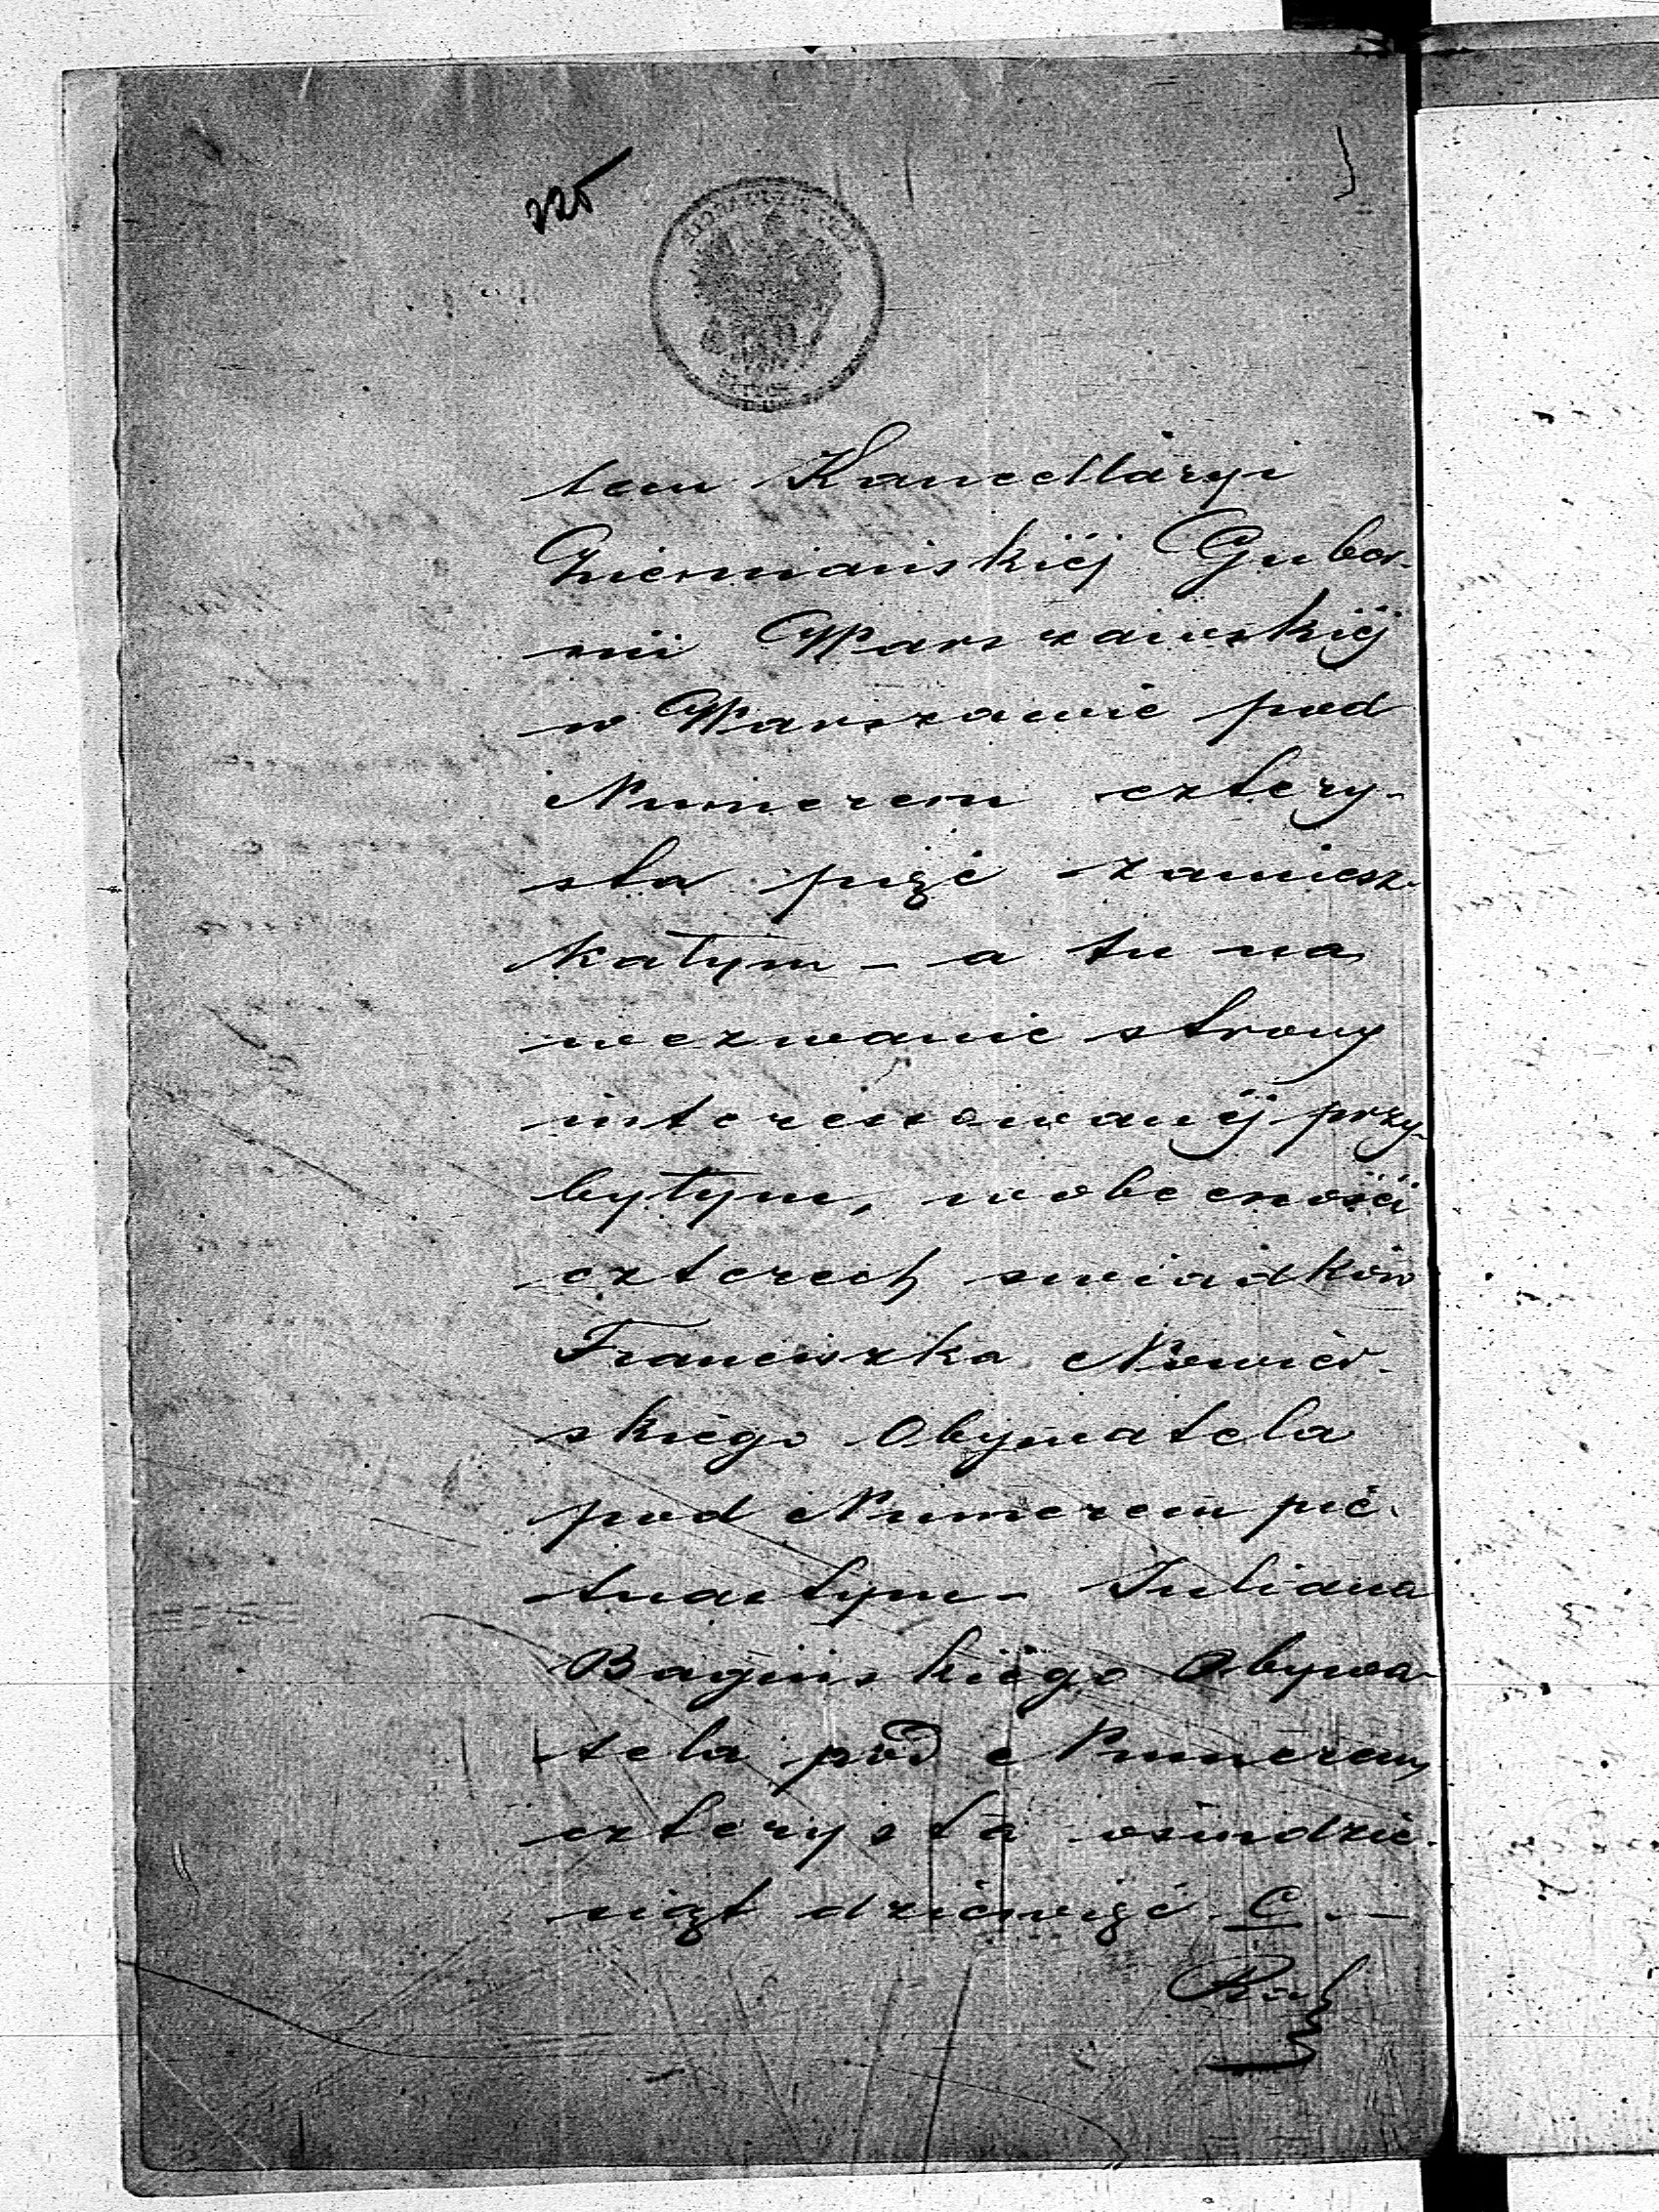 225
tem Kancellaryi
Ziemiańskiéj Guber-
nii Warszawskiéj
w Warszawie pod
Numerem cztery-
sta pięć zamiesz-
kałym – a tu na
wezwanie strony
interessowanéj przy-
byłym, w obecności
czterech świadków
Franciszka Nowier-
skiego Obywatela
pod Numerem pię-
tnastym – Juliana
Bagińskiego Obywa-
tela pod Numerem
czterysta ośmdzie-
siąt dziewięć C. –